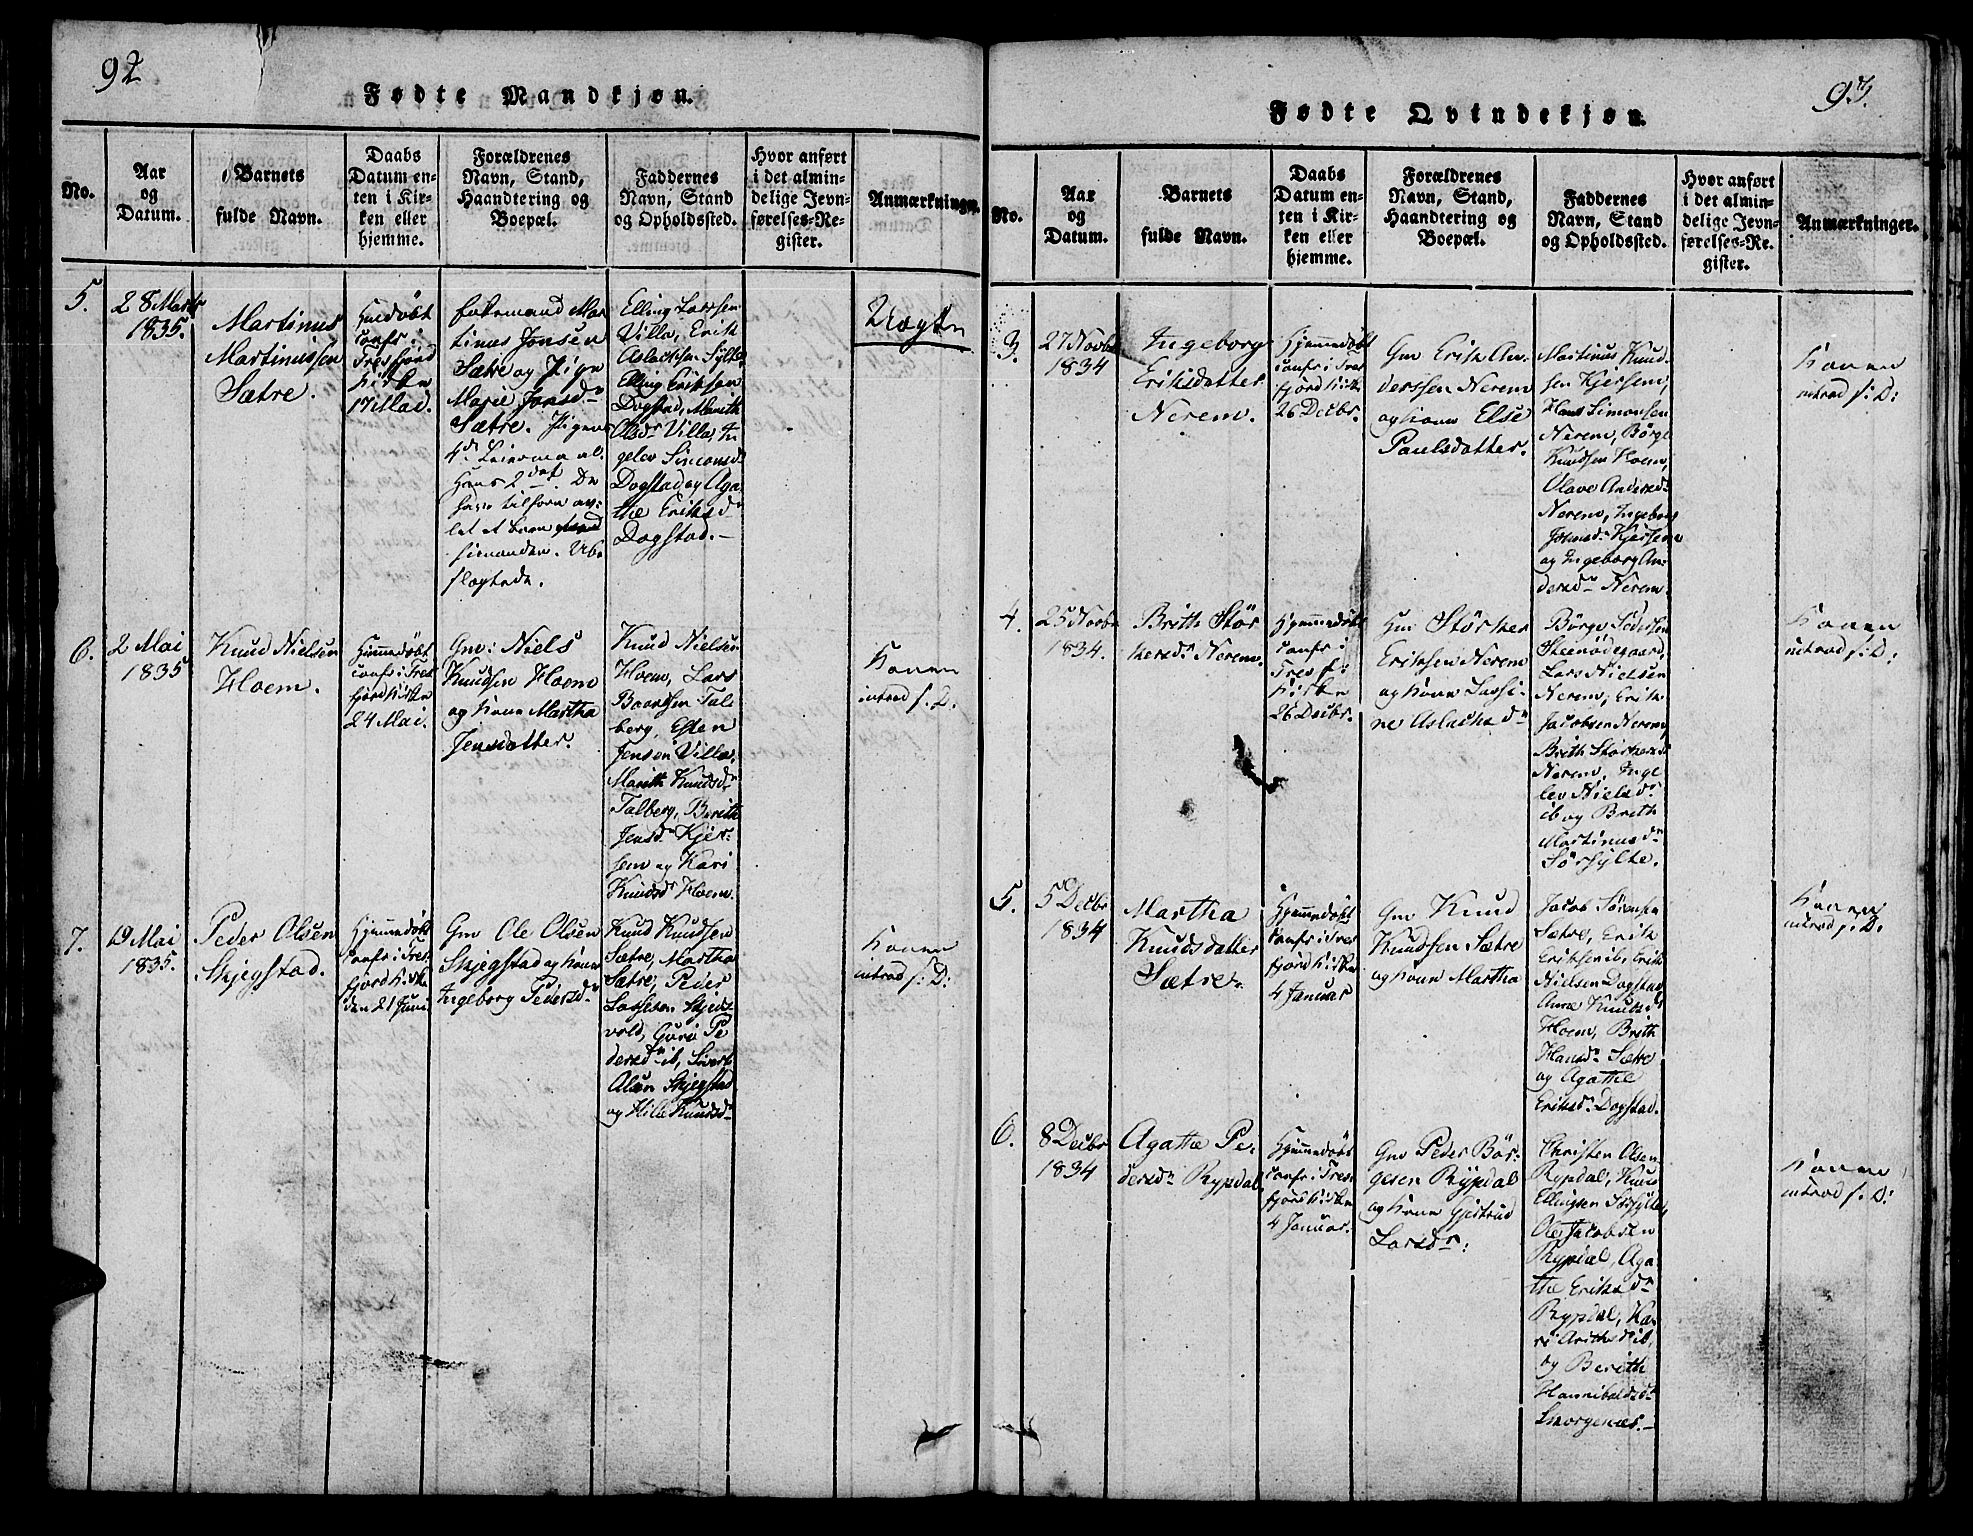 92
Fødte Mandkjøn.
No.
Aar
og
Datum.
Barnets
fulde Navn.
Daabs
Datum en-
ten i Kir-
ken eller
hjemme.
Forældrenes
Navn, Stand,
Haandtering og
Boepæl.
Faddernes
Navn, Stand
og Opholdssted.
Hvor anført
i det almin-
delige Jevn-
førelses-Re-
gister.
Anmærkninger.
5.
28 Marts
1835.
Martinus
Martinussen
Sætre.
Hiemdøbt
confr i
Tresfjord
Kirke
17 Mai.
Mar
tinus Jonsen
Sætre og Pige
Marie Jonsdr
Sætre. Pigens
4de Leiermaal
Hans 2det. De
have tilforn av-
let et barn
Ube
slægtede.
Elling Larssen
Villa, Erik
Aslachsen Sylte
Elling Eriksen
Dogstad, Marith
Olsdr Villa, In
gelev Simonsdr
Dogstad og Aga
the Eriksdr
Dogstad.
Uægte
6.
2 Mai
1835
Knud Nielsen
Hoem.
Hiemmedøbt
confr i Tres
fjord Kirke
24 Mai.
Gm: Niels
Knudsen Hoem
og Kone Martha
Jensdatter.
Knud Nielsen
Hoem, Lars
Baardsen Tal
berg, Esten
Jensen Villa,
Marith Knudsdr
Talberg, Berith
Jensdr Kjer-
sem og Kari
Knudsdr Hoem.
Konen
introd f. D.
7.
19 Mai
1835.
Peder Olsen
Skjegstad.
Hjemmedøbt
confr i Tres
fjord Kirke
den 21 Juni
Gm Ole Olsen
Skjegstad og Kone
Ingeborg Pedersdr
Knud Knudsen
Sætre, Martha
Sætre, Peder
Lassesen Skjeds
vold, Guro Pe
dersdr ib, Sivert
Olsen Skjegstad
og Hille Knudsdr
Konen
introd f: D:
93.
Fødte Qvindekjøn.
No.
Aar
og
Datum.
Barnets
fulde Navn.
Daabs
Datum en-
ten i Kir-
ken eller
hjemme.
Forældrenes
Navn, Stand,
Haandtering og
Boepæl.
Faddernes
Navn, Stand
og Opholdssted.
Hvor anført
i det almin-
delige Jevn-
førelses-Re-
gister.
Anmærkninger.
3.
27 Novbr
1834
Ingeborg
Eriksdatter
Nerem.
Hjemmedøbt
confr i Tres
fjord Kirke
26 Decbr.
Gm Erik An
derssen Nerem
og Kone Else
Paulsdatter.
Martinus Knud
sen Kjersem,
Hans Simonsen
Nerem, Børge
Knudsen Hoem,
Olave Andersdr
Nerem, Ingeborg
Johnsdr Kjersem
og Ingeborg An
dersdr Nerem.
Konen
introd f: D:
4.
25 Novbr
1834.
Brith Stör
kersdr Nerem.
Hjemmedøbt
confr i
Tresfj:
Kirke
26 Decbr.
Gm Störker
Eriksen Nerem
og Kone Lassi-
ne Aslachsdr
Børge Pedersen
Steenødegaard,
Lars Nielsen
Nerem, Erik
Jacobsen Nerem,
Brith Storkersdr
Nerem, Inge
lev Nielsdr
ib og Brith
Martinusdr
Sørsylte.
Konen
introd f: D:
5.
5 Decbr
1834
Martha
Knudsdatter
Sætre.
Hjemmedøbt
confr i Tres
fjord Kirke
4 Januar
Gm Knud
Knudsen Sætre
og Kone Martha
Jacob Sørensen
Sætre, Erik
Eriksen ib, Erik
Nielsen Dogstad
Anne Knudsdr
Hoem, Brith
Hansdr Sætre
og Agathe
Eriksdr Dogstad.
Konen
introd f. D.
6.
8 Decbr
1834
Agathe Pe-
dersdr Rypdal.
Hjemmedøbt
confr i Tres
fjord Kirke
4 Januar.
Gm Peder Bør-
gesen Rypdal
og Kone Gjertrud
Larsdr:
Christen Olsen
Rypdal, Knud
Ellingsen Sørsylte,
Ole Jacobsen
Rypdal, Aga-
the Eriksdr
Rypdal, Ka-
ri
og Berith
Hannibalsdr
Smorgenæs.
Konen
introd f: D: